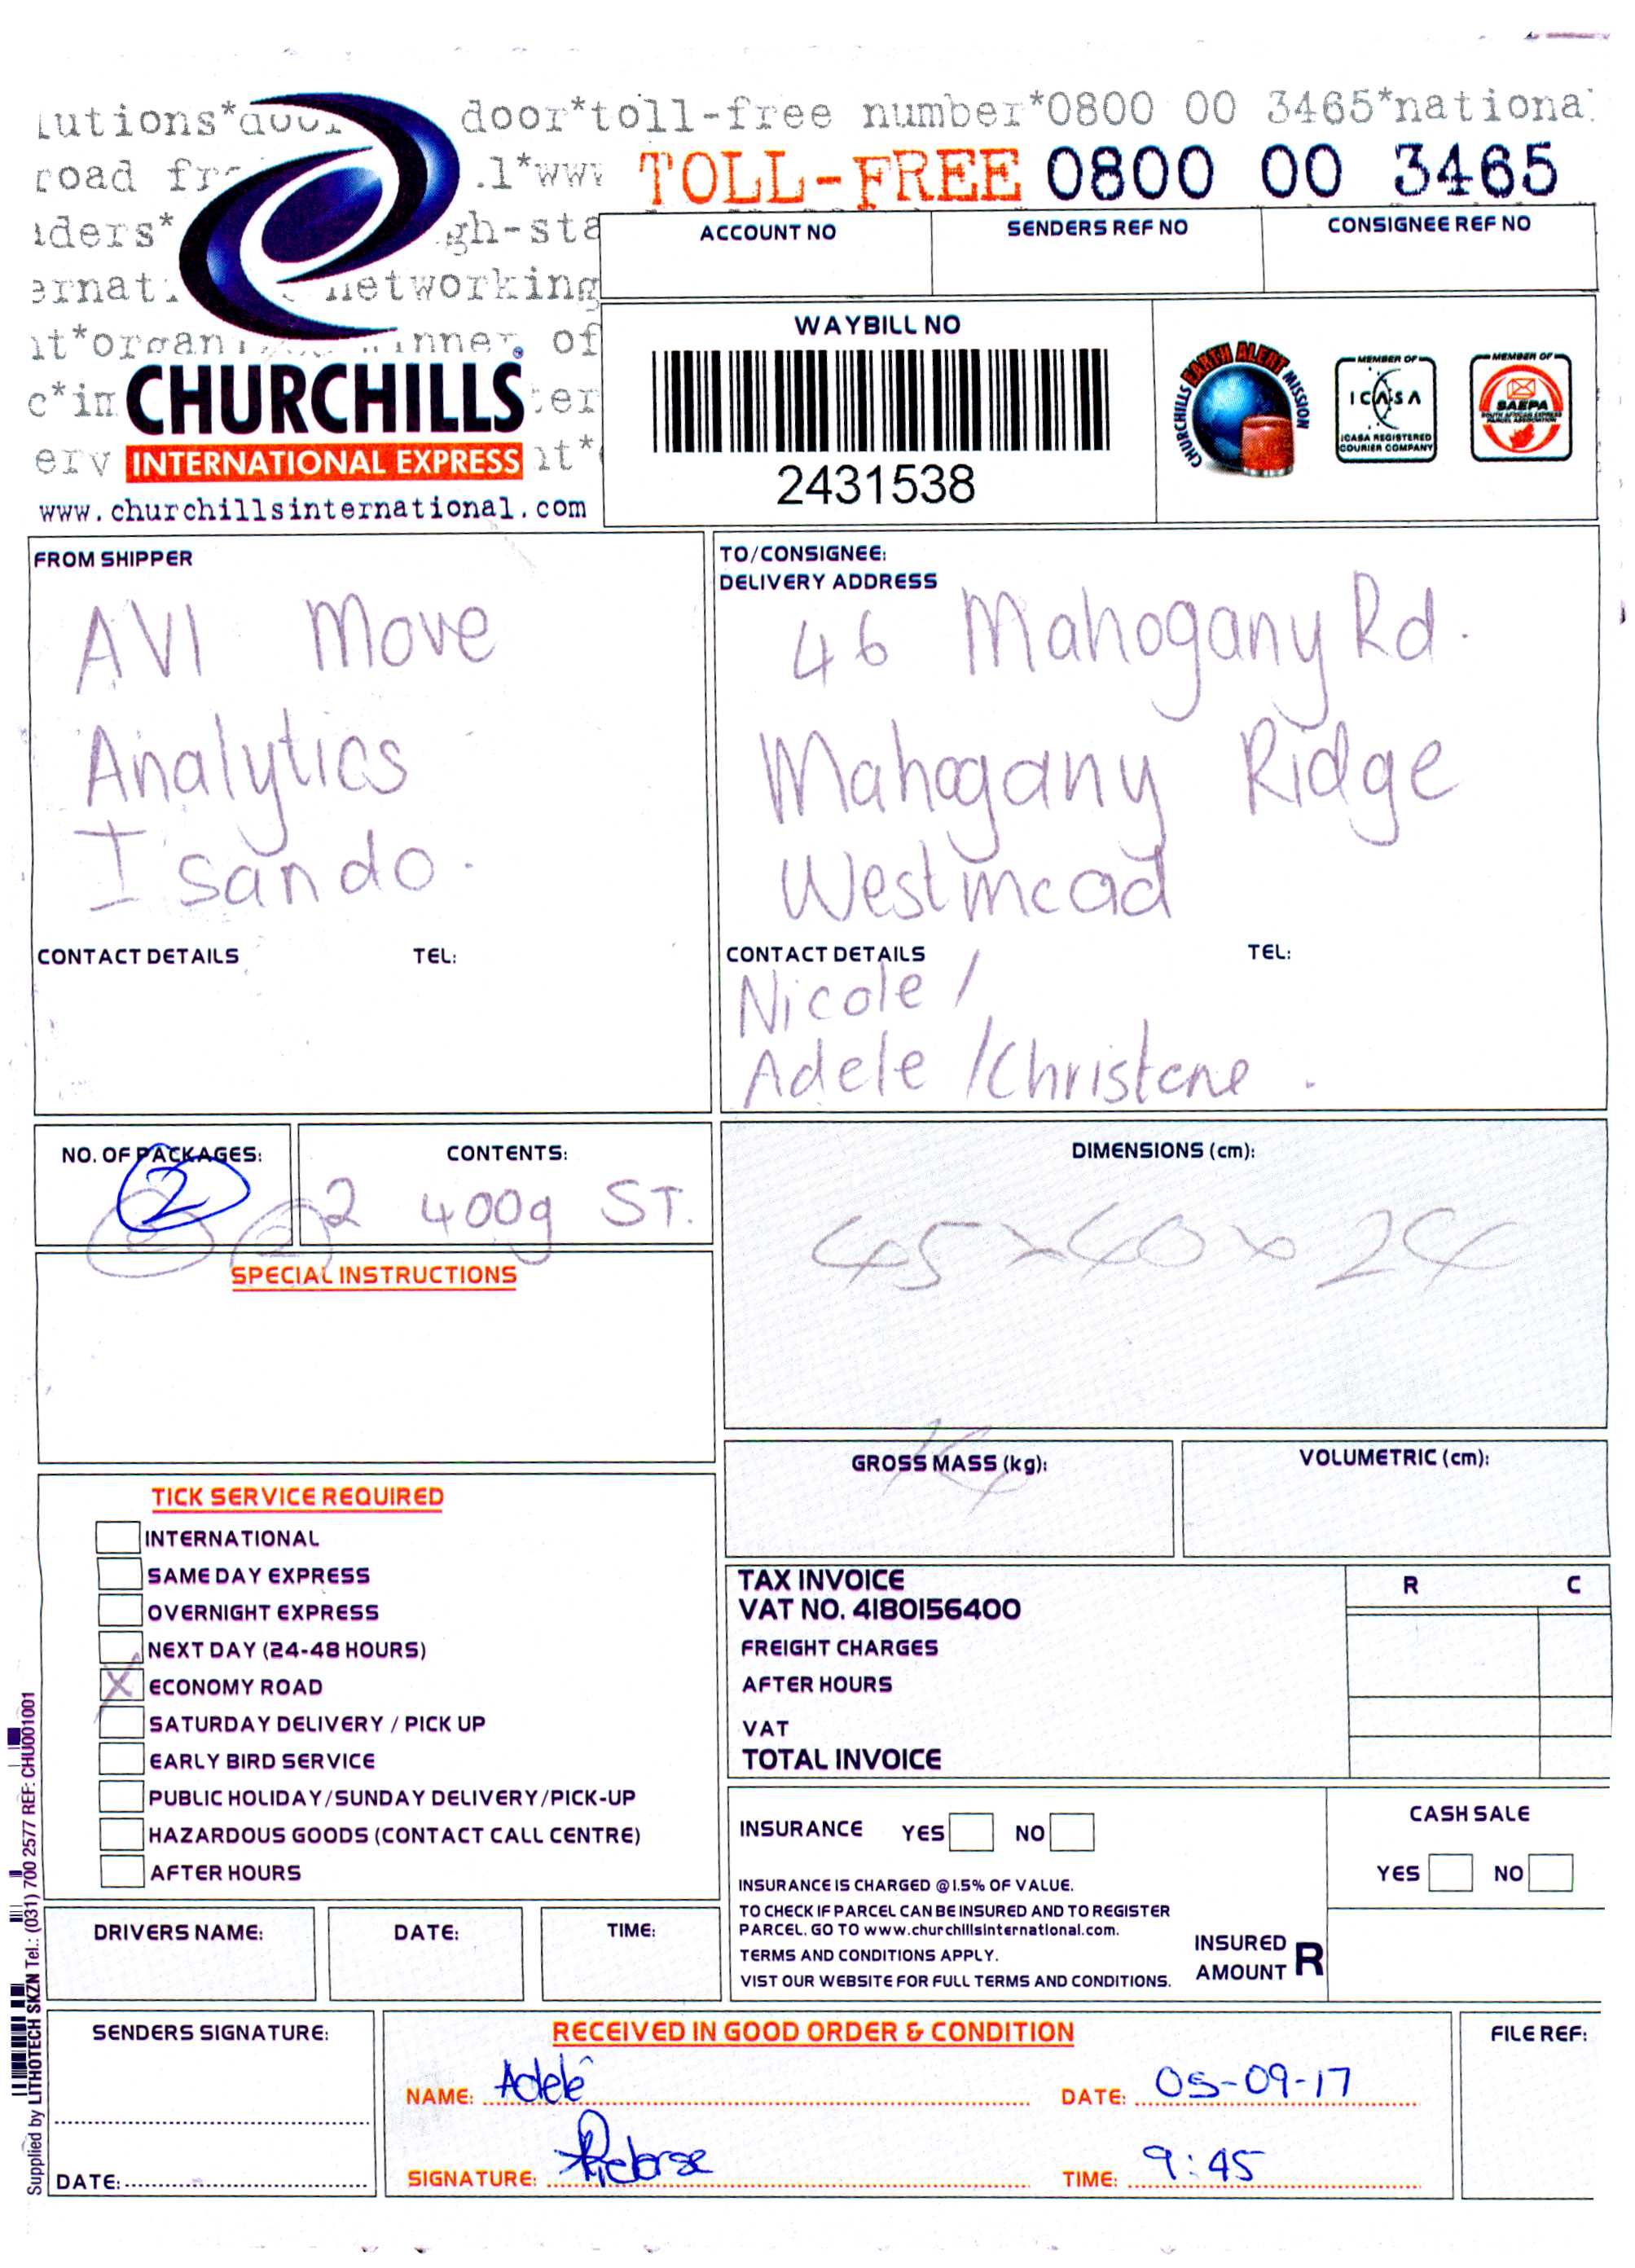 door*toll-free number*0800 00 3465*nationa
TOLL-FREE 0800 00 3465
CHURCHILLS
INTERNATIONAL EXPRESS
www.churchillsinternational.com
ACCOUNT NO
SENDERS REF NO
CONSIGNEE REF NO
WAYBILL NO
2431538
CHURCHILLS EARTH ALERT MISSION
MEMBER OF
ICASA
ICASA REGISTERED
COURIER COMPANY
MEMBER OF
SAEPA
SOUTH AFRICAN EXPRESS
PARCEL ASSOCIATION
FROM SHIPPER
AVI Move
Analytics
Isando.
CONTACT DETAILS TEL:
TO/CONSIGNEE:
DELIVERY ADDRESS
46 Mahogany Rd.
Mahogany Ridge
Westmead
CONTACT DETAILS TEL:
Nicole /
Adele / Christene.
NO. OF PACKAGES:
2
CONTENTS:
2 400g ST.
DIMENSIONS (cm):
45 x 40 x 24
SPECIAL INSTRUCTIONS
GROSS MASS (kg):
VOLUMETRIC (cm):
TICK SERVICE REQUIRED
INTERNATIONAL
SAME DAY EXPRESS
OVERNIGHT EXPRESS
NEXT DAY (24-48 HOURS)
X ECONOMY ROAD
SATURDAY DELIVERY / PICK UP
EARLY BIRD SERVICE
PUBLIC HOLIDAY/SUNDAY DELIVERY/PICK-UP
HAZARDOUS GOODS (CONTACT CALL CENTRE)
AFTER HOURS
TAX INVOICE R C
VAT NO. 4180156400
FREIGHT CHARGES
AFTER HOURS
VAT
TOTAL INVOICE
INSURANCE YES NO
INSURANCE IS CHARGED @ 1.5% OF VALUE.
TO CHECK IF PARCEL CAN BE INSURED AND TO REGISTER
PARCEL. GO TO www.churchillsinternational.com.
TERMS AND CONDITIONS APPLY.
VIST OUR WEBSITE FOR FULL TERMS AND CONDITIONS.
INSURED
AMOUNT R
CASH SALE
YES NO
DRIVERS NAME:
DATE:
TIME:
SENDERS SIGNATURE:
DATE:
RECEIVED IN GOOD ORDER & CONDITION
NAME: Adele DATE: 05-09-17
SIGNATURE: TIME: 9:45
FILE REF:
Supplied by LITHOTECH SKZN Tel.: (031) 700 2577 REF: CHU001001